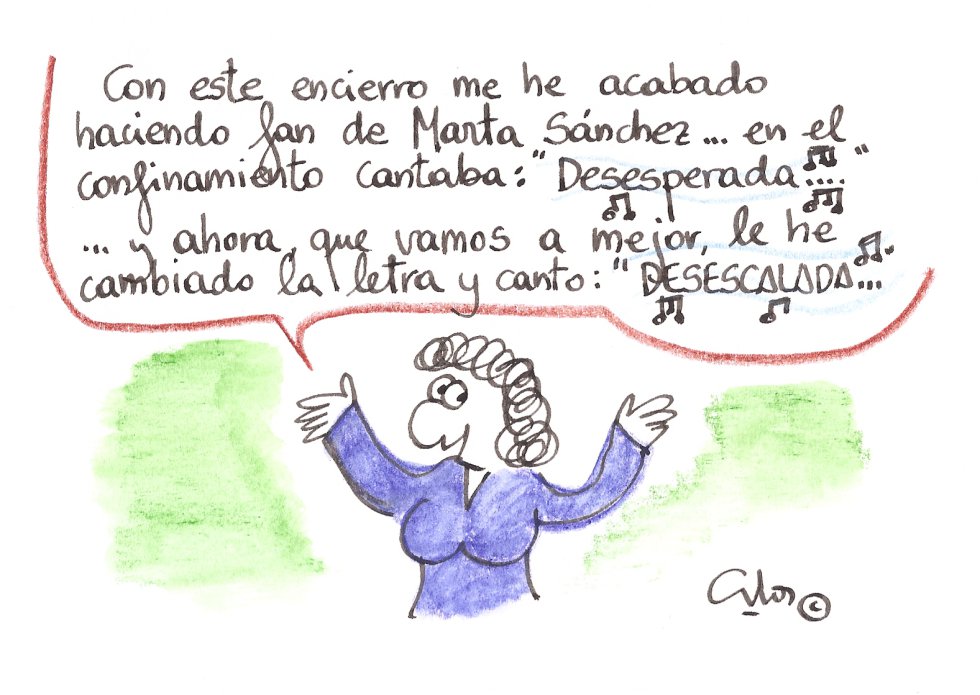 Con este encierro me he acabado
haciendo fan de Marta Sánchez... en el
confinamiento cantaba: "Desesperada...."
... y ahora, que vamos a mejor, le he
cambiado la letra y canto: "DESESCALADA..."
©